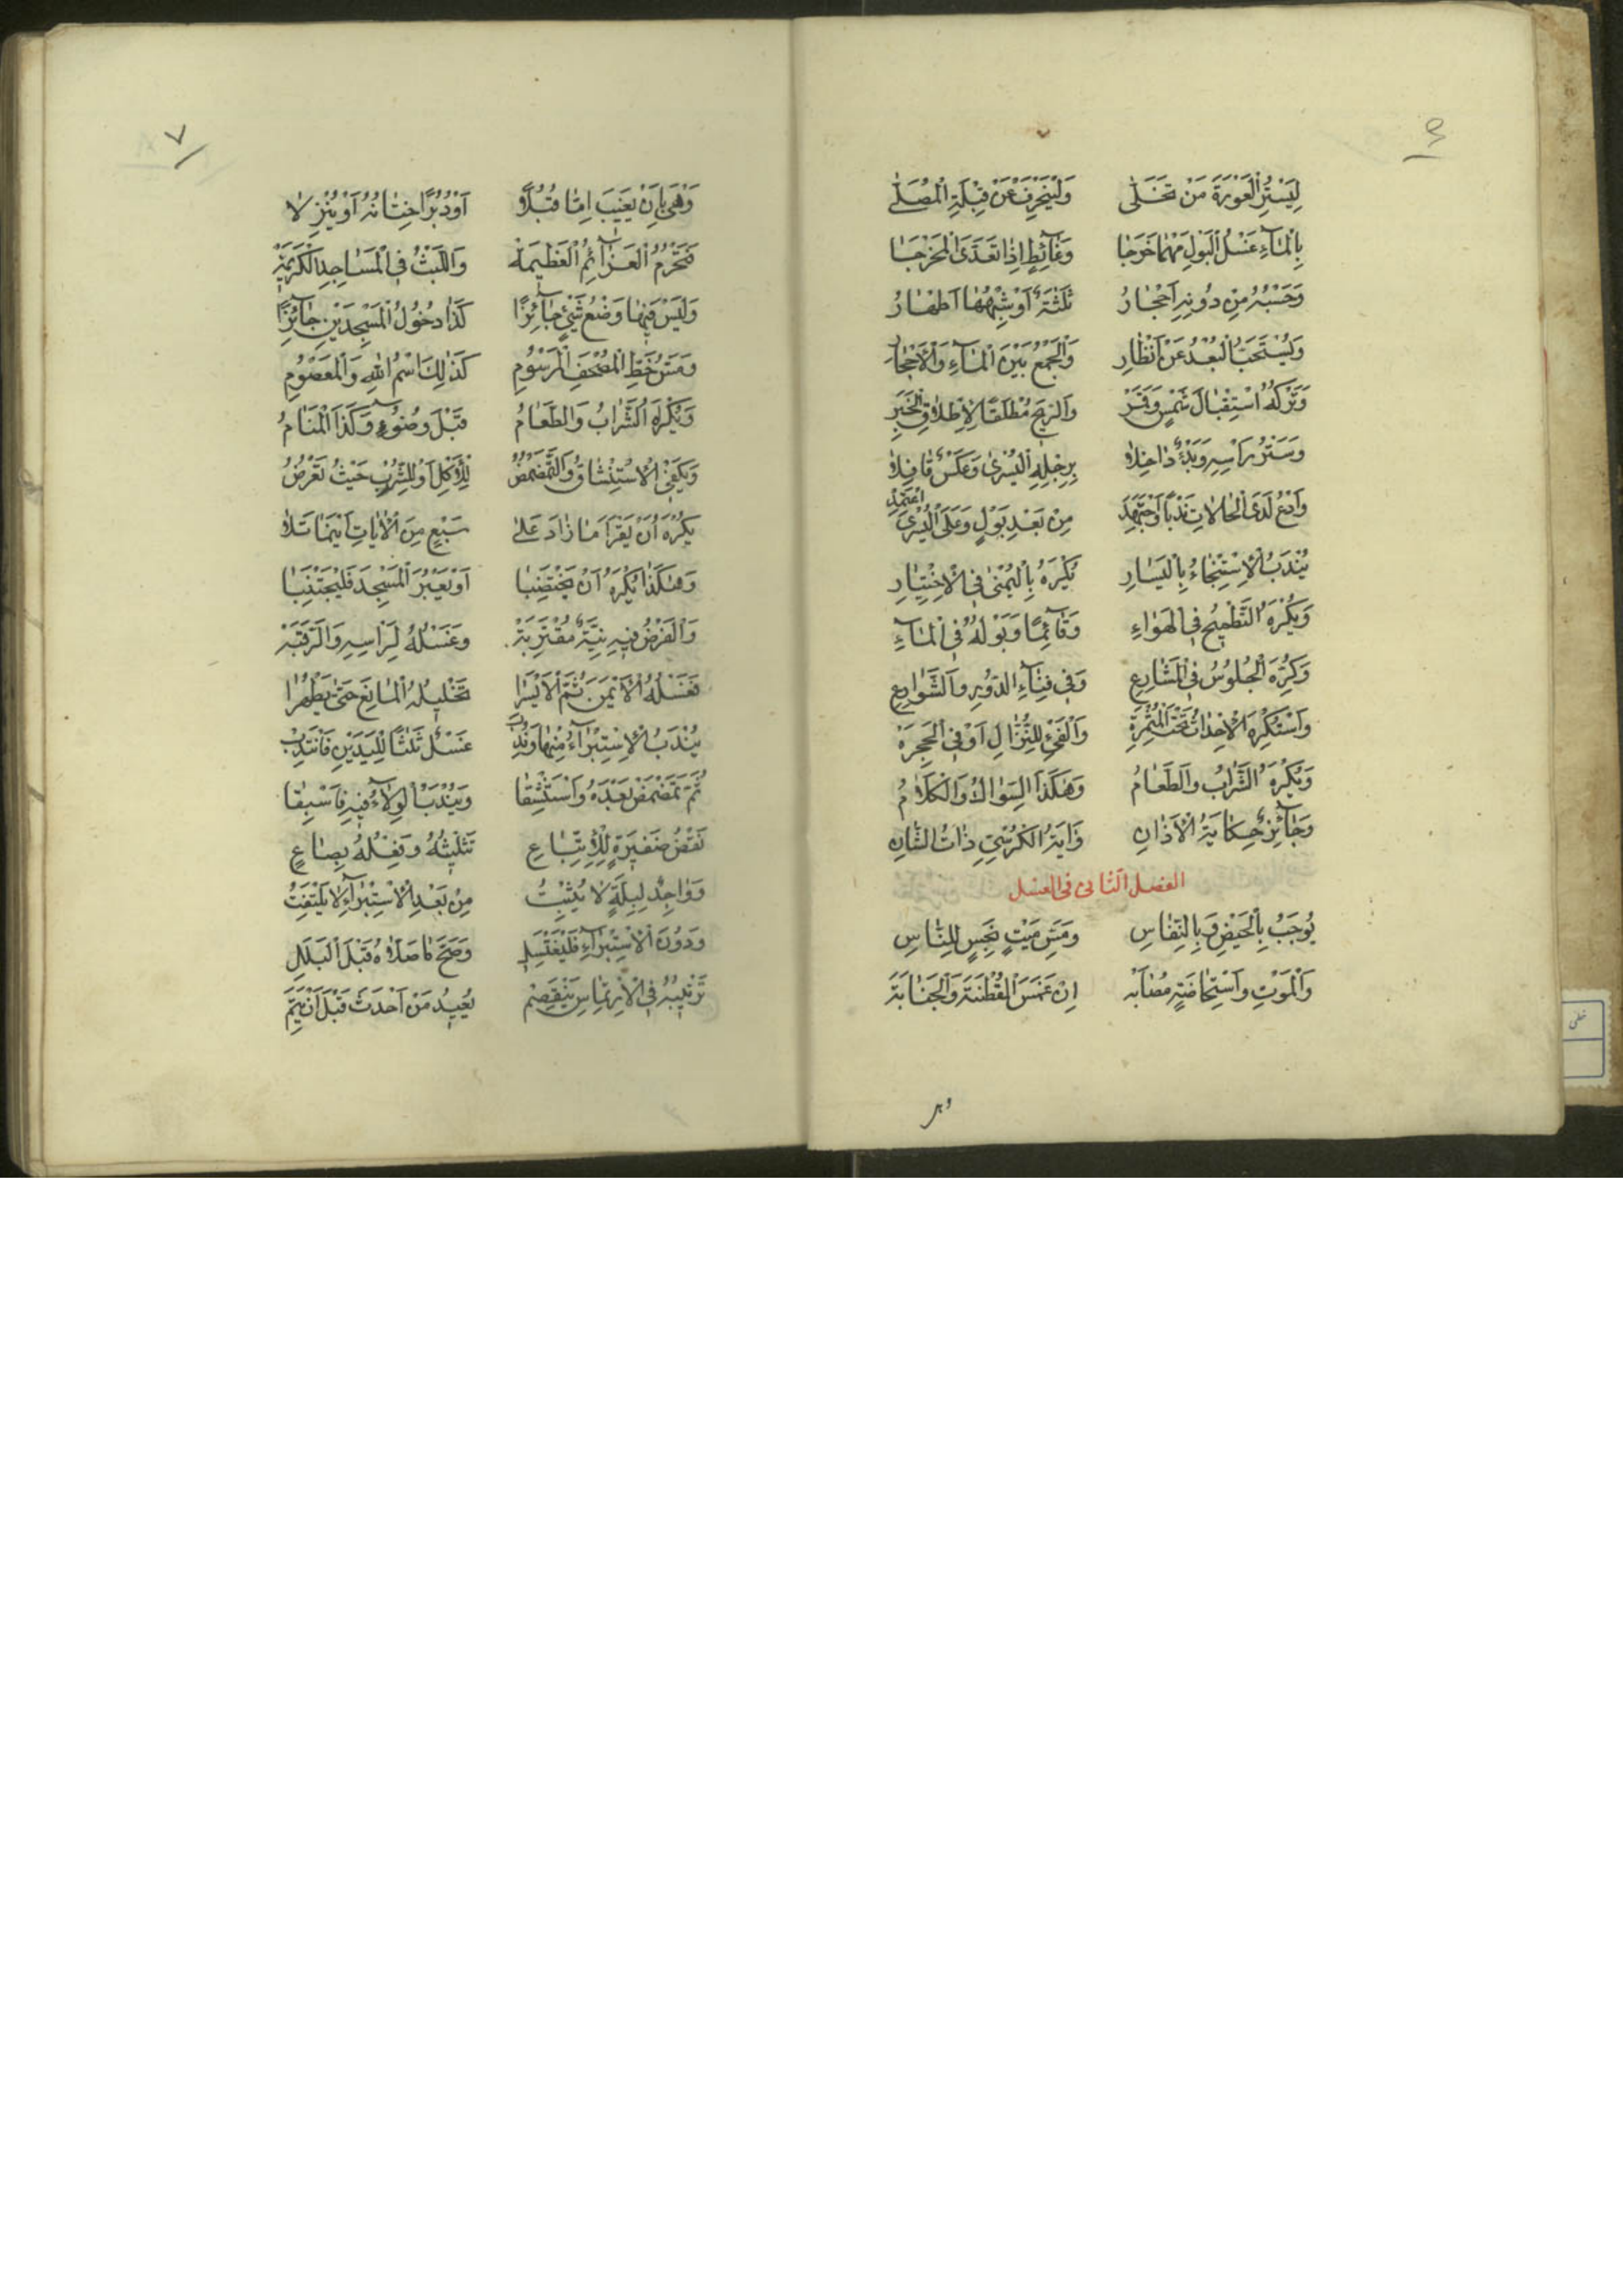 لِيَسْتُرِ الْعَوْرَةَ مَنْ تَخَلّٰى وَلْيَنْحَرِفْ عَنْ قِبْلَةِ الْمُصَلّٰى
بِالْمَآءِ غَسْلُ الْبَوْلِ مَهْمَا خَرَجَا وَغَآئِطٍ اِذَا تَعَدَّى الْمَخْرَجَا
وَحَسْبُهُ مِنْ دُونِهِ اَحْجَارُ ثَلٰثَةٌ اَوْ شِبْهُهَا اَطْهَارُ
وَيُسْتَحَبُّ الْبُعْدُ عَنْ اَنْظَارِ وَالْجَمْعُ بَيْنَ الْمَآءِ وَالْاَحْجَارِ
وَتَرْكُهُ اسْتِقْبَالَ شَمْسٍ وَقَمَرْ وَالرِّيحِ مُطْلَقًا لِاِطْلَاقِ الْخَبَرْ
وَسَتْرُ رَاْسِهِ وَبَدْءٌ دَاخِلًا بِرِجْلِهِ الْيُسْرٰى وَعَكْسٌ قَافِلًا
وَادْعُ لَدَى الْحَالَاتِ نَدْبًا وَاجْتَهِدْ مِنْ بَعْدِ بَوْلٍ وَعَلَى الْيُسْرَى اعْتَمِدْ
يُنْدَبُ الْاِسْتِنْجَاءُ بِالْيَسَارِ يُكْرَهُ بِالْيُمْنٰى فِي الْاِخْتِيَارِ
وَيُكْرَهُ التَّطْمِيحُ فِي الْهَوَاءِ وَقَآئِمًا وَبَوْلُهُ فِي الْمَآءِ
وَكُرِّهَ الْجُلُوسُ فِي الْمَشَارِعِ وَفِي فِنَآءِ الدُّورِ وَالشَّوَارِعِ
وَاسْتُكْرِهَ الْاِحْدَاثُ تَحْتَ الْمُثْمِرَةِ وَالْفَيْءِ لِلنُّزَّالِ اَوْ فِي الْجَحِرَهْ
وَيُكْرَهُ الشَّرَابُ وَالطَّعَامُ وَهٰكَذَا السِّوَاكُ وَالْكَلَامُ
وَجَآئِزٌ حِكَايَةُ الْاَذَانِ وَاٰيَةُ الْكُرْسِيِّ ذَاتُ الشَّانِ
الفصل الثانى فى الغسل
يُوجَبُ بِالْحَيْضِ وَبِالنِّفَاسِ وَمَسِّ مَيْتٍ نَجِسٍ لِلنَّاسِ
وَالْمَوْتِ وَاسْتِحَاضَةٍ مُصَابَهْ اِنْ غَمَسَ الْقُطْنَةَ وَالْجَنَابَةَ
وَهْىَ
وَهْىَ بِاَنْ يَغِيبَ اِمَّا قُبُلًا اَوْ دُبُرًا خِتَانُهُ اَوْ يُنْزِلَا
فَتَحْرُمُ الْعَزَآئِمُ الْعَظِيمَةْ وَاللَّبْثُ فِي الْمَسَاجِدِ الْكَرِيمَةْ
وَلَيْسَ فِيهَا وَضْعُ شَيْءٍ جَآئِزًا كَذَا دُخُولُ الْمَسْجِدَيْنِ جَآئِزًا
وَمَسُّ خَطِّ الْمُصْحَفِ الْمَرْسُومِ كَذٰلِكَ اسْمُ اللهِ وَالْمَعْصُومِ
وَيُكْرَهُ الشَّرَابُ وَالطَّعَامُ قَبْلَ وُضُوءٍ وَكَذَا الْمَنَامُ
وَيَكْفِي الْاِسْتِنْشَاقُ وَالتَّمَضْمُضُ لِلْاَكْلِ اَوْ لِلشُّرْبِ حَيْثُ تَعْرُضُ
يُكْرَهُ اَنْ يَقْرَا مَا زَادَ عَلٰى سَبْعٍ مِنَ الْاٰيَاتِ اَيْنَمَا تَلَا
وَهٰكَذَا يُكْرَهُ اَنْ يَخْتَضِبَا اَوْ يَعْبُرَ الْمَسْجِدَ فَلْيَجْتَنِبَا
وَالْفَرْضُ فِيهِ نِيَّةٌ مُقْتَرِبَةْ وَغَسْلُهُ لِرَاْسِهِ وَالرَّقَبَةْ
فَغَسْلُهُ الْاَيْمَنَ ثُمَّ الْاَيْسَرَا تَخْلِيلُهُ الْمَانِعَ حَتّٰى يَطْهُرَا
يُنْدَبُ الْاِسْتِبْرَآءُ مِنْهَا وَنُدِبْ غَسْلٌ ثَلٰثًا لِلْيَدَيْنِ فَانْتَدِبْ
ثُمَّ تَمَضْمَضْ بَعْدَهُ وَاسْتَنْشِقَا وَيُنْدَبُ الْوِلَآءُ فِيهِ فَاسْبِقَا
نَقْضُ ضَفِيرَةٍ لِلْاِتِّبَاعِ تَثْلِيثُهُ وَفِعْلُهُ بِصَاعٍ
وَوَاجِدٌ لِبِلَّةٍ لَا يُثْبِتُ مِنْ بَعْدِ الْاِسْتِبْرَآءِ لَا يَلْتَفِتُ
وَدُونَ الْاِسْتِبْرَآءِ فَلْيَغْتَسِلِ وَصَحَّ مَا صَلَّاهُ قَبْلَ الْبَلَلِ
تَرْتِيبُهُ فِي الْاِرْتِمَاسِ يُعِيدُ مَنْ اَحْدَثَ قَبْلَ اَنْ يُتِمَّ
٧